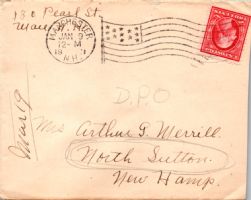 130 Pearl St.
Man
MANCHESTER
JAN 9
12-M
N.H.
D.P.O
Mrs Arthur G. Merrill.
North Sutton.
New Hamp.